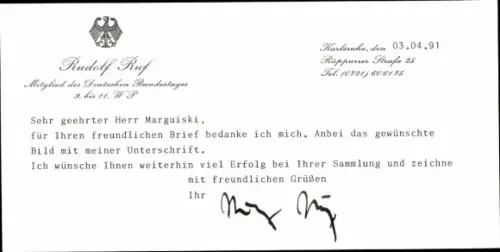 Rudolf Ruf
Mitglied des Deutschen Bundestages
9. bis 11. WP
Karlsruhe, den 03.04.91
Rüppurrer Straße 25
Tel. (0721) 600175
Sehr geehrter Herr Marguiski,
für Ihren freundlichen Brief bedanke ich mich. Anbei das gewünschte
Bild mit meiner Unterschrift.
Ich wünsche Ihnen weiterhin viel Erfolg bei Ihrer Sammlung und zeichne
mit freundlichen Grüßen
Ihr